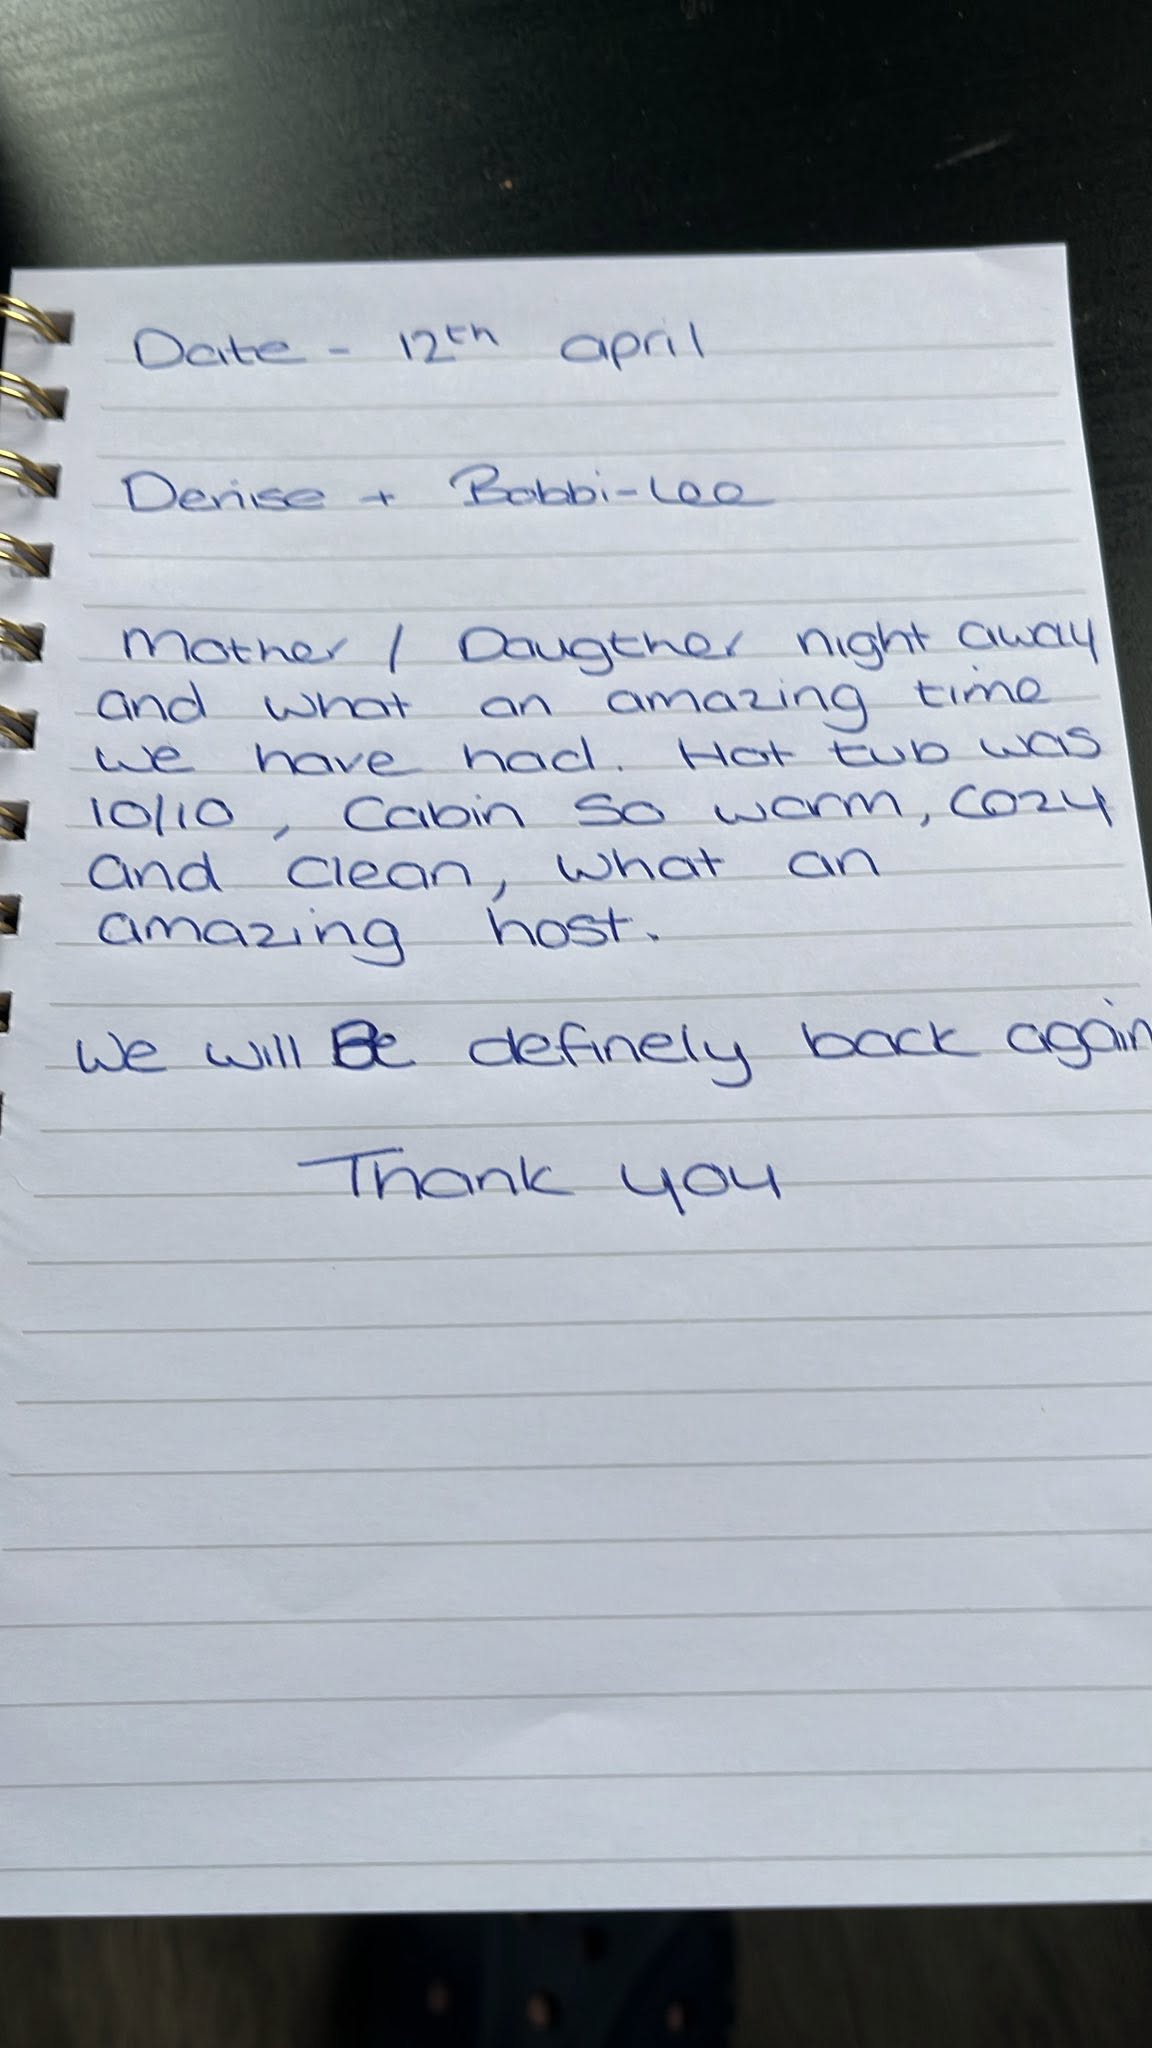 Date - 12th april
Denise + Bobbi-Lee
Mother / Daugther night away
and what an amazing time
we have had. Hot tub was
10/10, Cabin so warm, cozy
and clean, what an
amazing host.
We will Be definely back again
Thank you